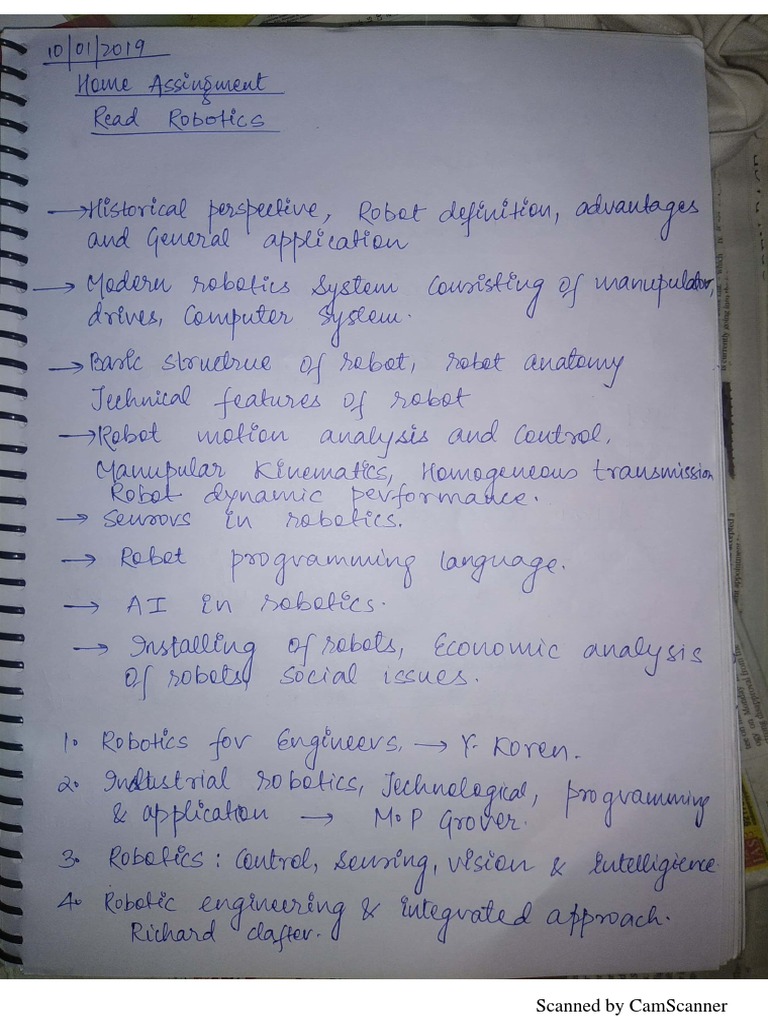 10/01/2019
Home Assingment
Read Robotics
→Historical perspective, Robot definition, advantages
and General application
→ Modern robotics system consisting of manupulator,
drives, Computer System.
→ Basic structrue of robot, robot anatomy
Technical features of robot
→Robot motion analysis and control,
Manupular Kinematics, Homogeneous transmission
Robot dynamic performance.
→ Sensors in robotics.
→ Robot programming language.
→ AI in robotics.
→ Installing of robots, Economic analysis
of robots, social issues.
1. Robotics for Engineers, → Y. Koren.
2. Industrial robotics, Technological, programming
& application → M.P Grover.
3. Robotics : Control, Sensing, Vision & intelligience
4. Robotic engineering & integrated approach.
Richard clafter.
Scanned by CamScanner